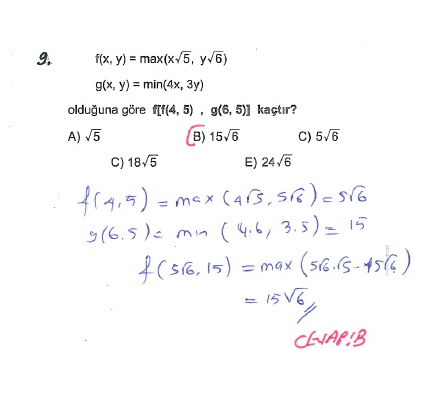 9. f(x, y) = max(x√5, y√6)
g(x, y) = min(4x, 3y)
olduğuna göre f[f(4, 5) , g(6, 5)] kaçtır?
A) √5 B) 15√6 C) 5√6
C) 18√5 E) 24√6
f(4,5) = max(4√5, 5√6) = 5√6
g(6.5) = min (4.6, 3.5) = 15
f(5√6, 15) = max(5√6.√5-15√6)
= 15√6
CEVAP:B